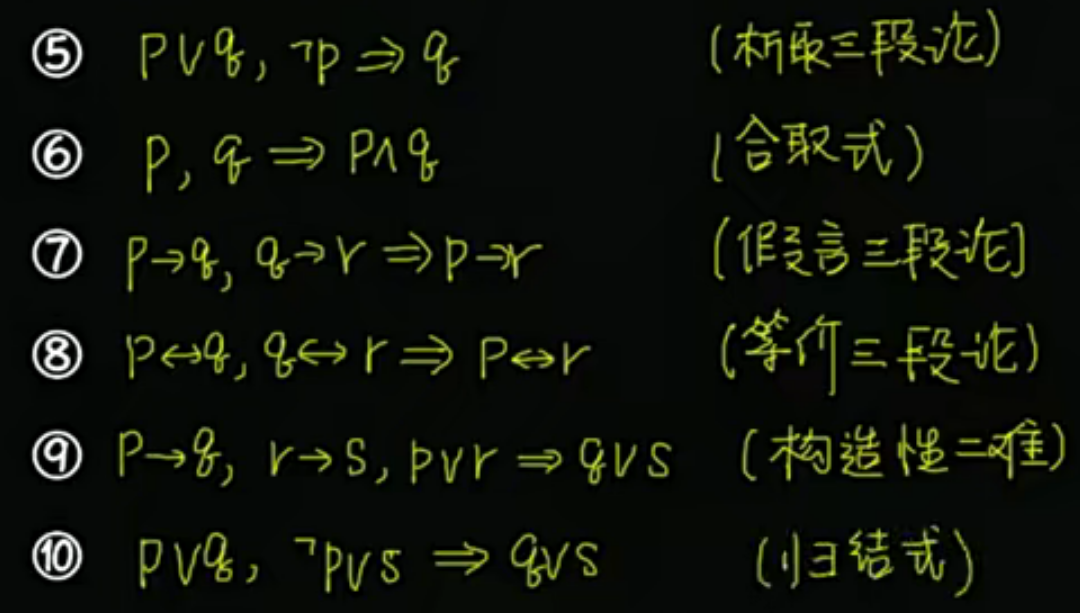 ⑤ p∨q, ¬p ⇒ q (析取三段论)
⑥ p, q ⇒ p∧q (合取式)
⑦ p→q, q→r ⇒ p→r (假言三段论]
⑧ p↔q, q↔r ⇒ p↔r (等价三段论)
⑨ p→q, r→s, p∨r ⇒ q∨s (构造性二难)
⑩ p∨q, ¬p∨s ⇒ q∨s (归结式)